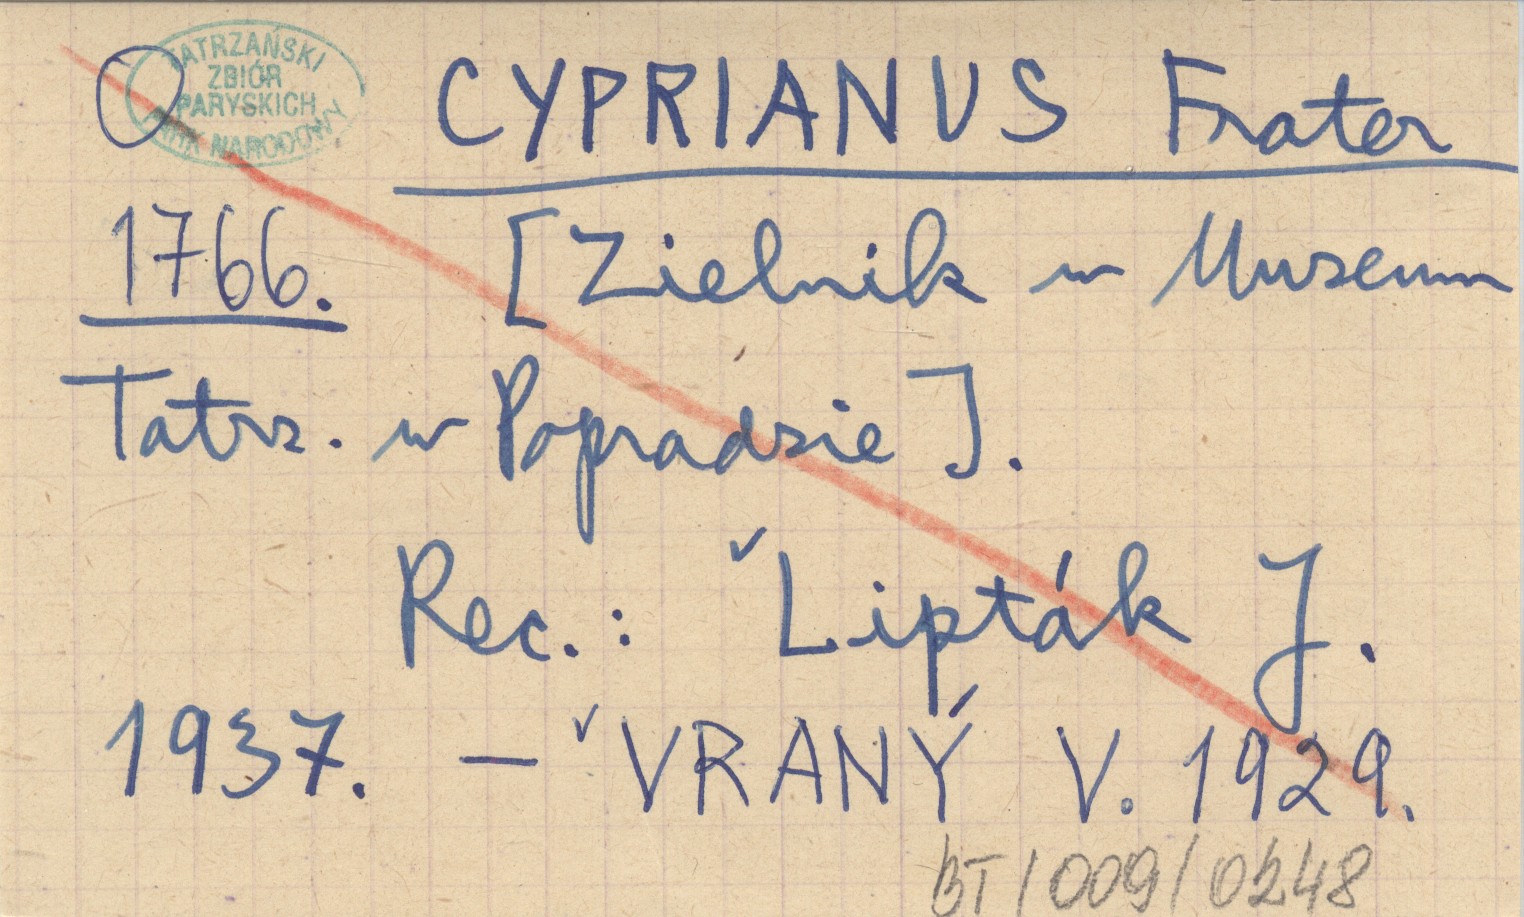 TATRZAŃSKI
ZBIÓR
PARYSKICH
PARK NARODOWY
O CYPRIANUS Frater
1766. [Zielnik w Muzeum
Tatrz. w Popradzie].
Rec.: Lipták J.
1937. — VRANÝ V. 1929.
BT/009/0248